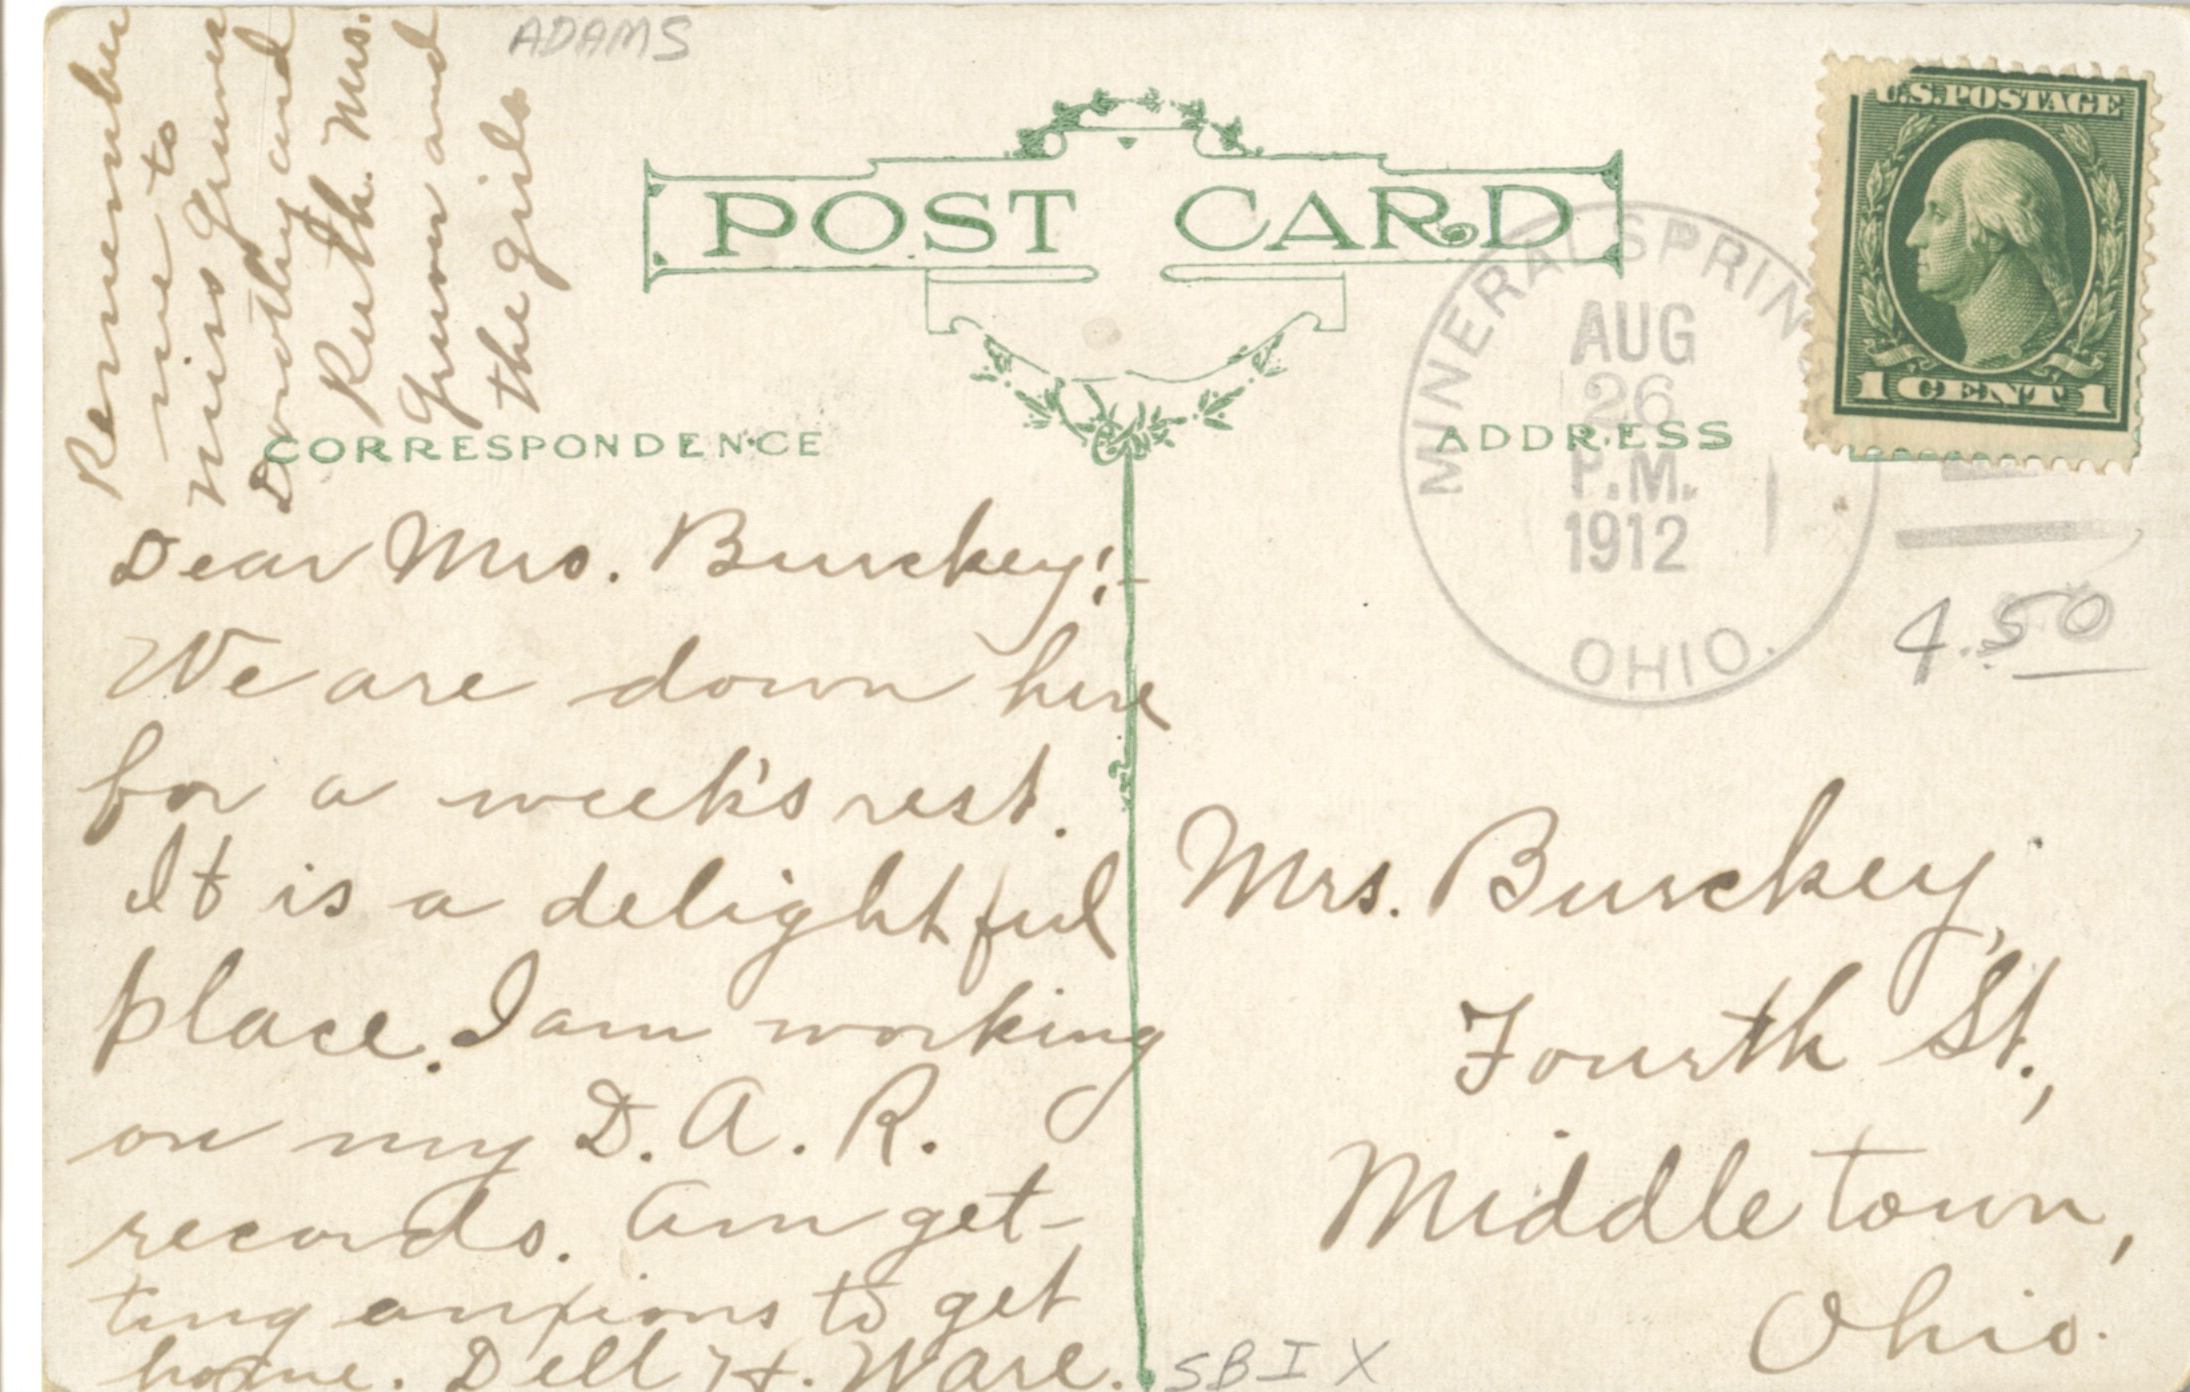 ADAMS
Remember
me to
Miss Gruner
Dorothy and
Ruth. Mrs.
Gruner and
the girls
POST CARD
U.S.POSTAGE
1 CENT 1
MINERAL SPRINGS
AUG
26
P.M.
1912
OHIO.
CORRESPONDENCE
ADDRESS
4.50
Dear Mrs. Burckey:-
We are down here
for a week's rest.
It is a delightful
place. I am working
on my D.A.R.
records. Am get-
ting anxious to get
home. Dell H. Ware.
Mrs. Burckey,
Fourth St.,
Middletown,
Ohio.
SBIX